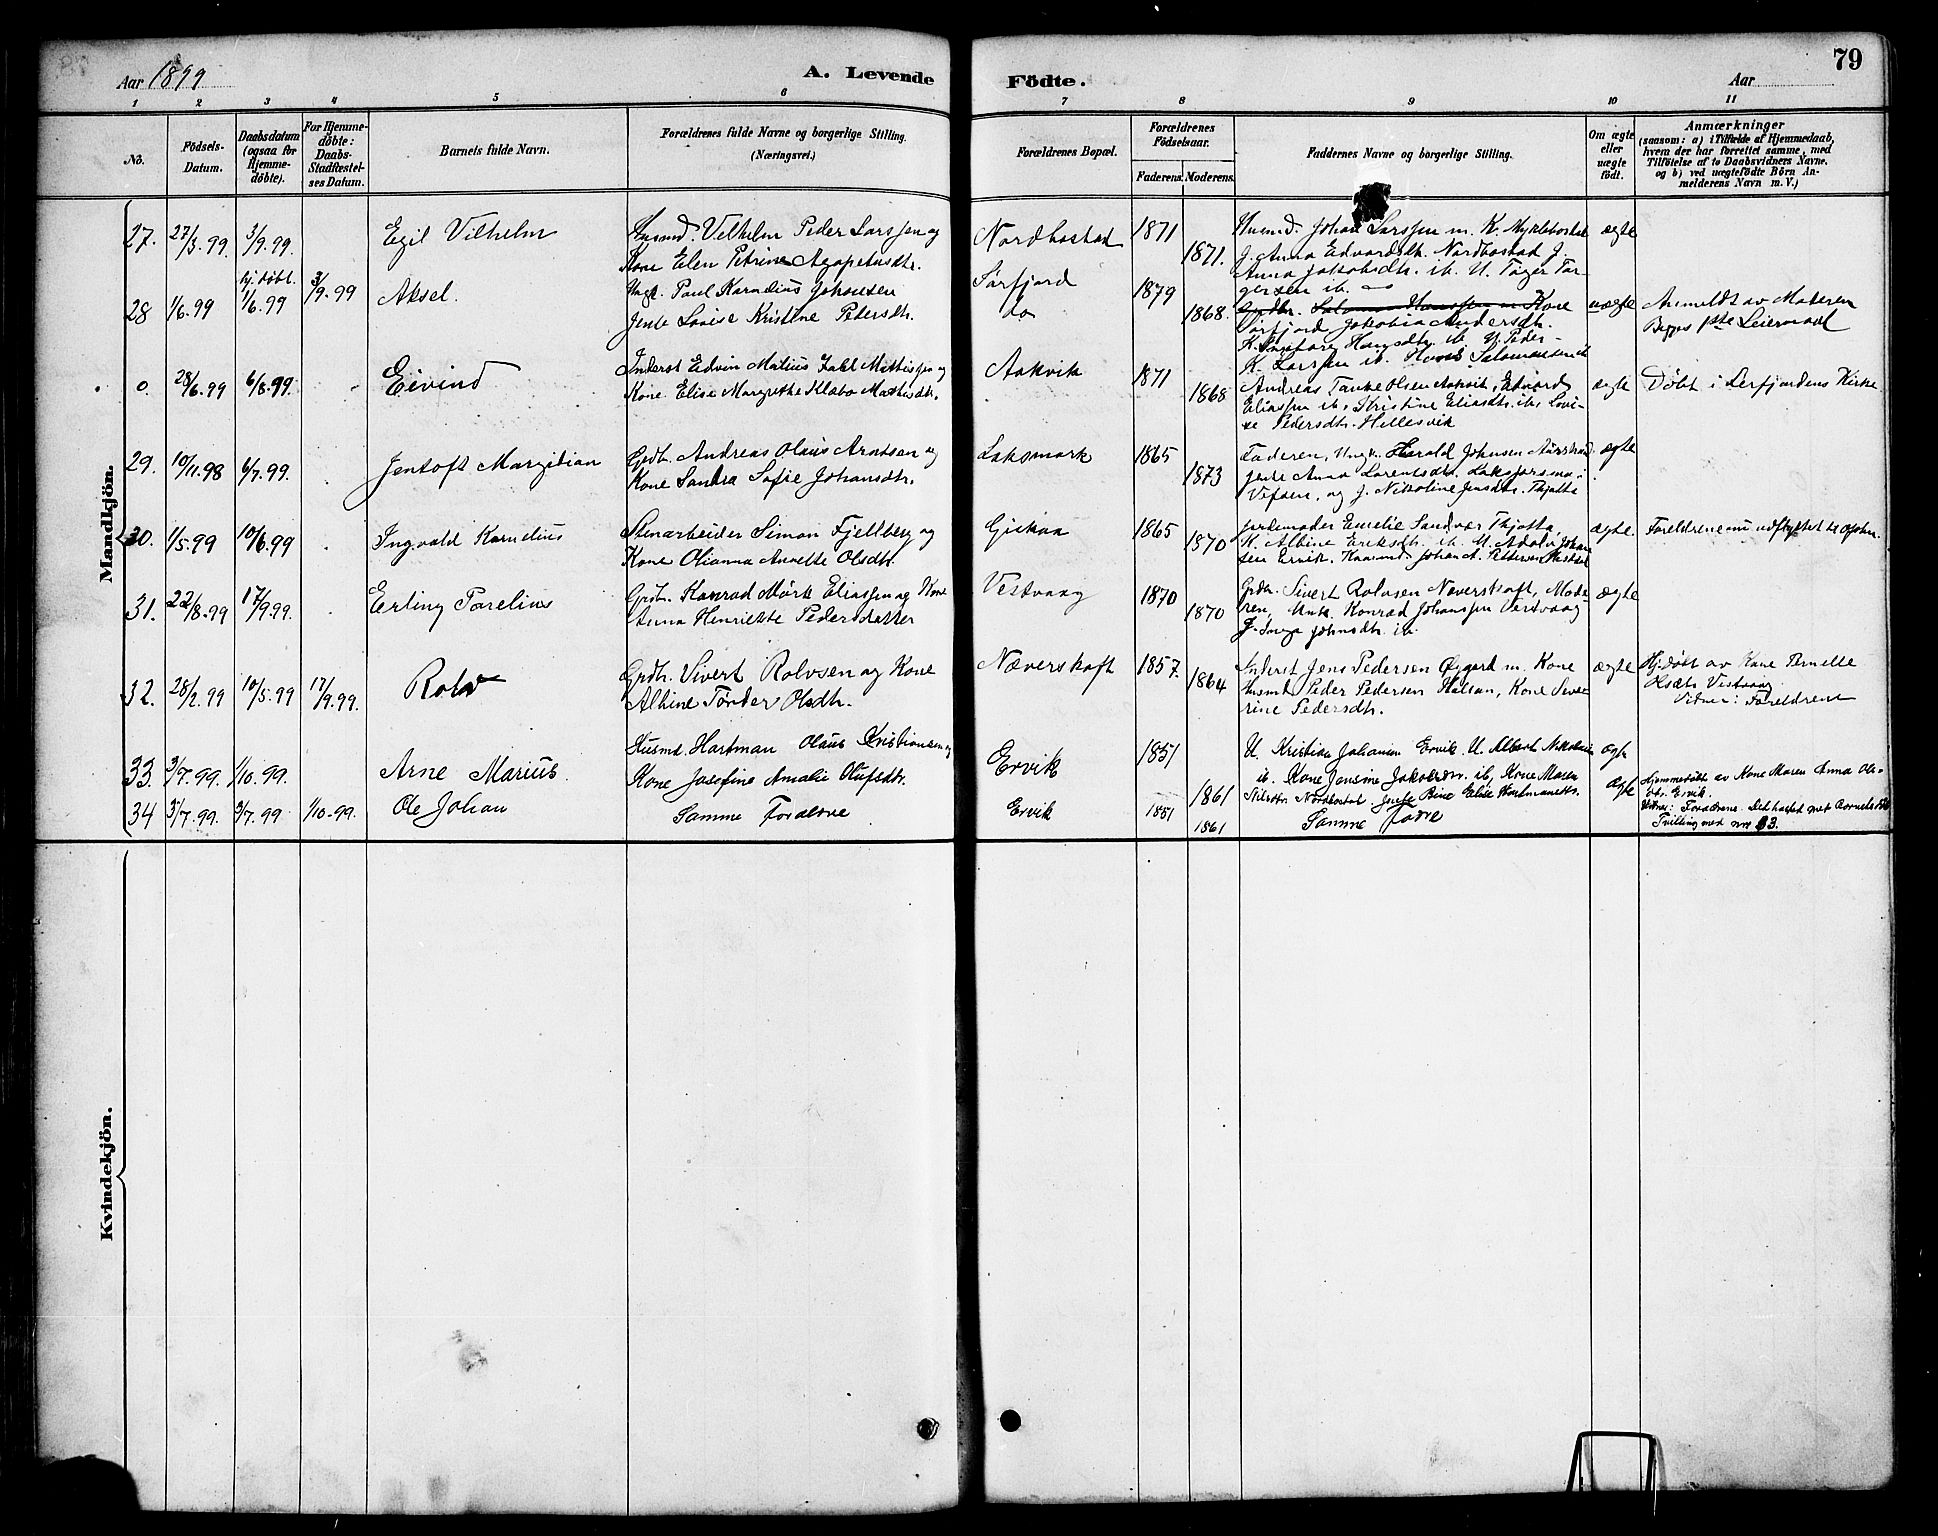 79
Aar 1899
A. Levende
Födte.
Aar
1 2 3 4 5 6 7 8 9 10 11
No.
Födsels-
Datum.
Daabsdatum
(ogsaa for
Hjemme-
døbte).
For Hjemme-
döbte:
Daabs-
Stadfæstel-
ses Datum.
Barnets fulde Navn.
Forældrenes fulde Navne og borgerlige Stilling.
(Næringsvei.)
Forældrenes Bopæl.
Forældrenes
Födselsaar.
Faderens. Moderens.
Faddernes Navne og borgerlige Stilling.
Om ægte
eller
uægte
födt.
Anmærkninger
(saasom: a) i Tilfælde af Hjemmedaab,
hvem der har forrettet samme, med
Tilföielse af to Daabsvidners Navne,
og b) ved uægtefödte Börn An-
melderens Navn m. V.)
Mandkjön.
27. 27/3.99 3/9.99. Egil Vilhelm
Husmd. Vilhelm Peder Larssen og
Kone Elen Petrine Agapetusdtr.
Nordbostad 1871 1871.
Husmd. Johan Larssen m. K. Myklebostad
J. Anna Edvardsdtr. Nordbostad J.
Anna Jakobsdtr. ib. U. Tøger Tør-
gersen ib.
ægte
28 1/6.99 hj. døbt 1/6.99 3/9.99 Aksel.
Ungk. Paul Kornelius Johansen
Jente Lovise Kristine Pedersdtr.
Sørfjord
do
1879 1868.
Grdbr. Salamon Hanssen m Kone
Sørfjord Jakobia Andersdtr.
K. Ingeborg Hansdtr. ib. U. Peder
K. Larssen ib. Hans Salamonsen ib
uægte
Anmeldt av Moderen
Begges 1ste Leiermaal
0. 28/6.99 6/8.99. Eivind
Inderst Edvin Matius Falk Mathissen og
Kone Elise Margrethe Klabo Mathisdtr.
Aakvik 1871 1868
Andreas Tanke Olsen Aakvik, Edvard
Eliassen ib, Kristine Eliasdtr. ib, Lovi-
se Pedersdtr. Hellesvik
ægte Døbt i Lerfjordens Kirke
29. 10/11.98 6/7.99. Jentoft Margidian
Grdb. Andreas Olaus Arntsen og
Kone Sandra Sofie Johansdtr.
Laksmark 1865 1873
Faderen, Ungk. Harald Johnsen
Jente Anna Lorentsdtr. Laksforsmo i
Vefsen, og J. Nikoline Jensdtr. Thjotta
ægte
30. 1/5.99 10/6.99 Ingvald Kornelius
Stenarbeider Simon Fjellberg og
Kone Olianna Annette Olsdtr.
Giskaa 1865 1870
Jordemoder Emelie Sandvær Thjotta,
K. Albine Eriksdtr. ib. U. Adolv Johan
sen Ervik. Husmd. Johan A. Pettersen
ægte. Foreldrene nu udflyttet til
31. 22/8.99 17/9.99. Erling Torelius
Grdb. Konrad Mørk Eliassen og Kone
Anna Henriette Pedersdatter
Vestvaag 1870 1870
Grdbr. Sivert Rolvsen Næverskaft, Mode-
ren, Konrad Johanssen Vestvaag
J. Inga Johnsdtr. ib.
ægte
32. 28/2.99 10/5.99 17/9.99. Rolv
Grdbr. Sivert Rolvsen og Kone
Albine Tønder Olsdtr.
Næverskaft 1857. 1864
Inderst Jens Pedersen Øygard m. Kone
Husmd Peder Pedersen Halsan, Kone Seve
rine Pedersdtr.
ægte
Hj.døbt av Kone Pernelle
Vestvaag
Vidner: Foreldrene
33. 3/7.99. 1/10.99. Arne Marius.
Husmd. Hartman Olaus Kristiansen og
Kone Josefine Amalie Olufsdtr.
Ervik 1851 1861
U. Kristian Johansen Ervik. U. Albert Nikolaisen
ib. Kone Jensine Jakobsen. ib, Kone Maren
Nilsdtr. Nordbostad Jente Bine Elise Hartmansdtr.
ægte
34 3/7.99. 3/7.99 1/10.99. Ole Johan
Samme Forældre
Ervik 1851 1861
Samme Fadre
Ægte
Hjemmedøbt av Kone Maren Anna Ols-
dtr. Ervik.
Vidner: Forældrene. Det hastet met Barnets død
Tvilling med no 33.
Kvindekjön.